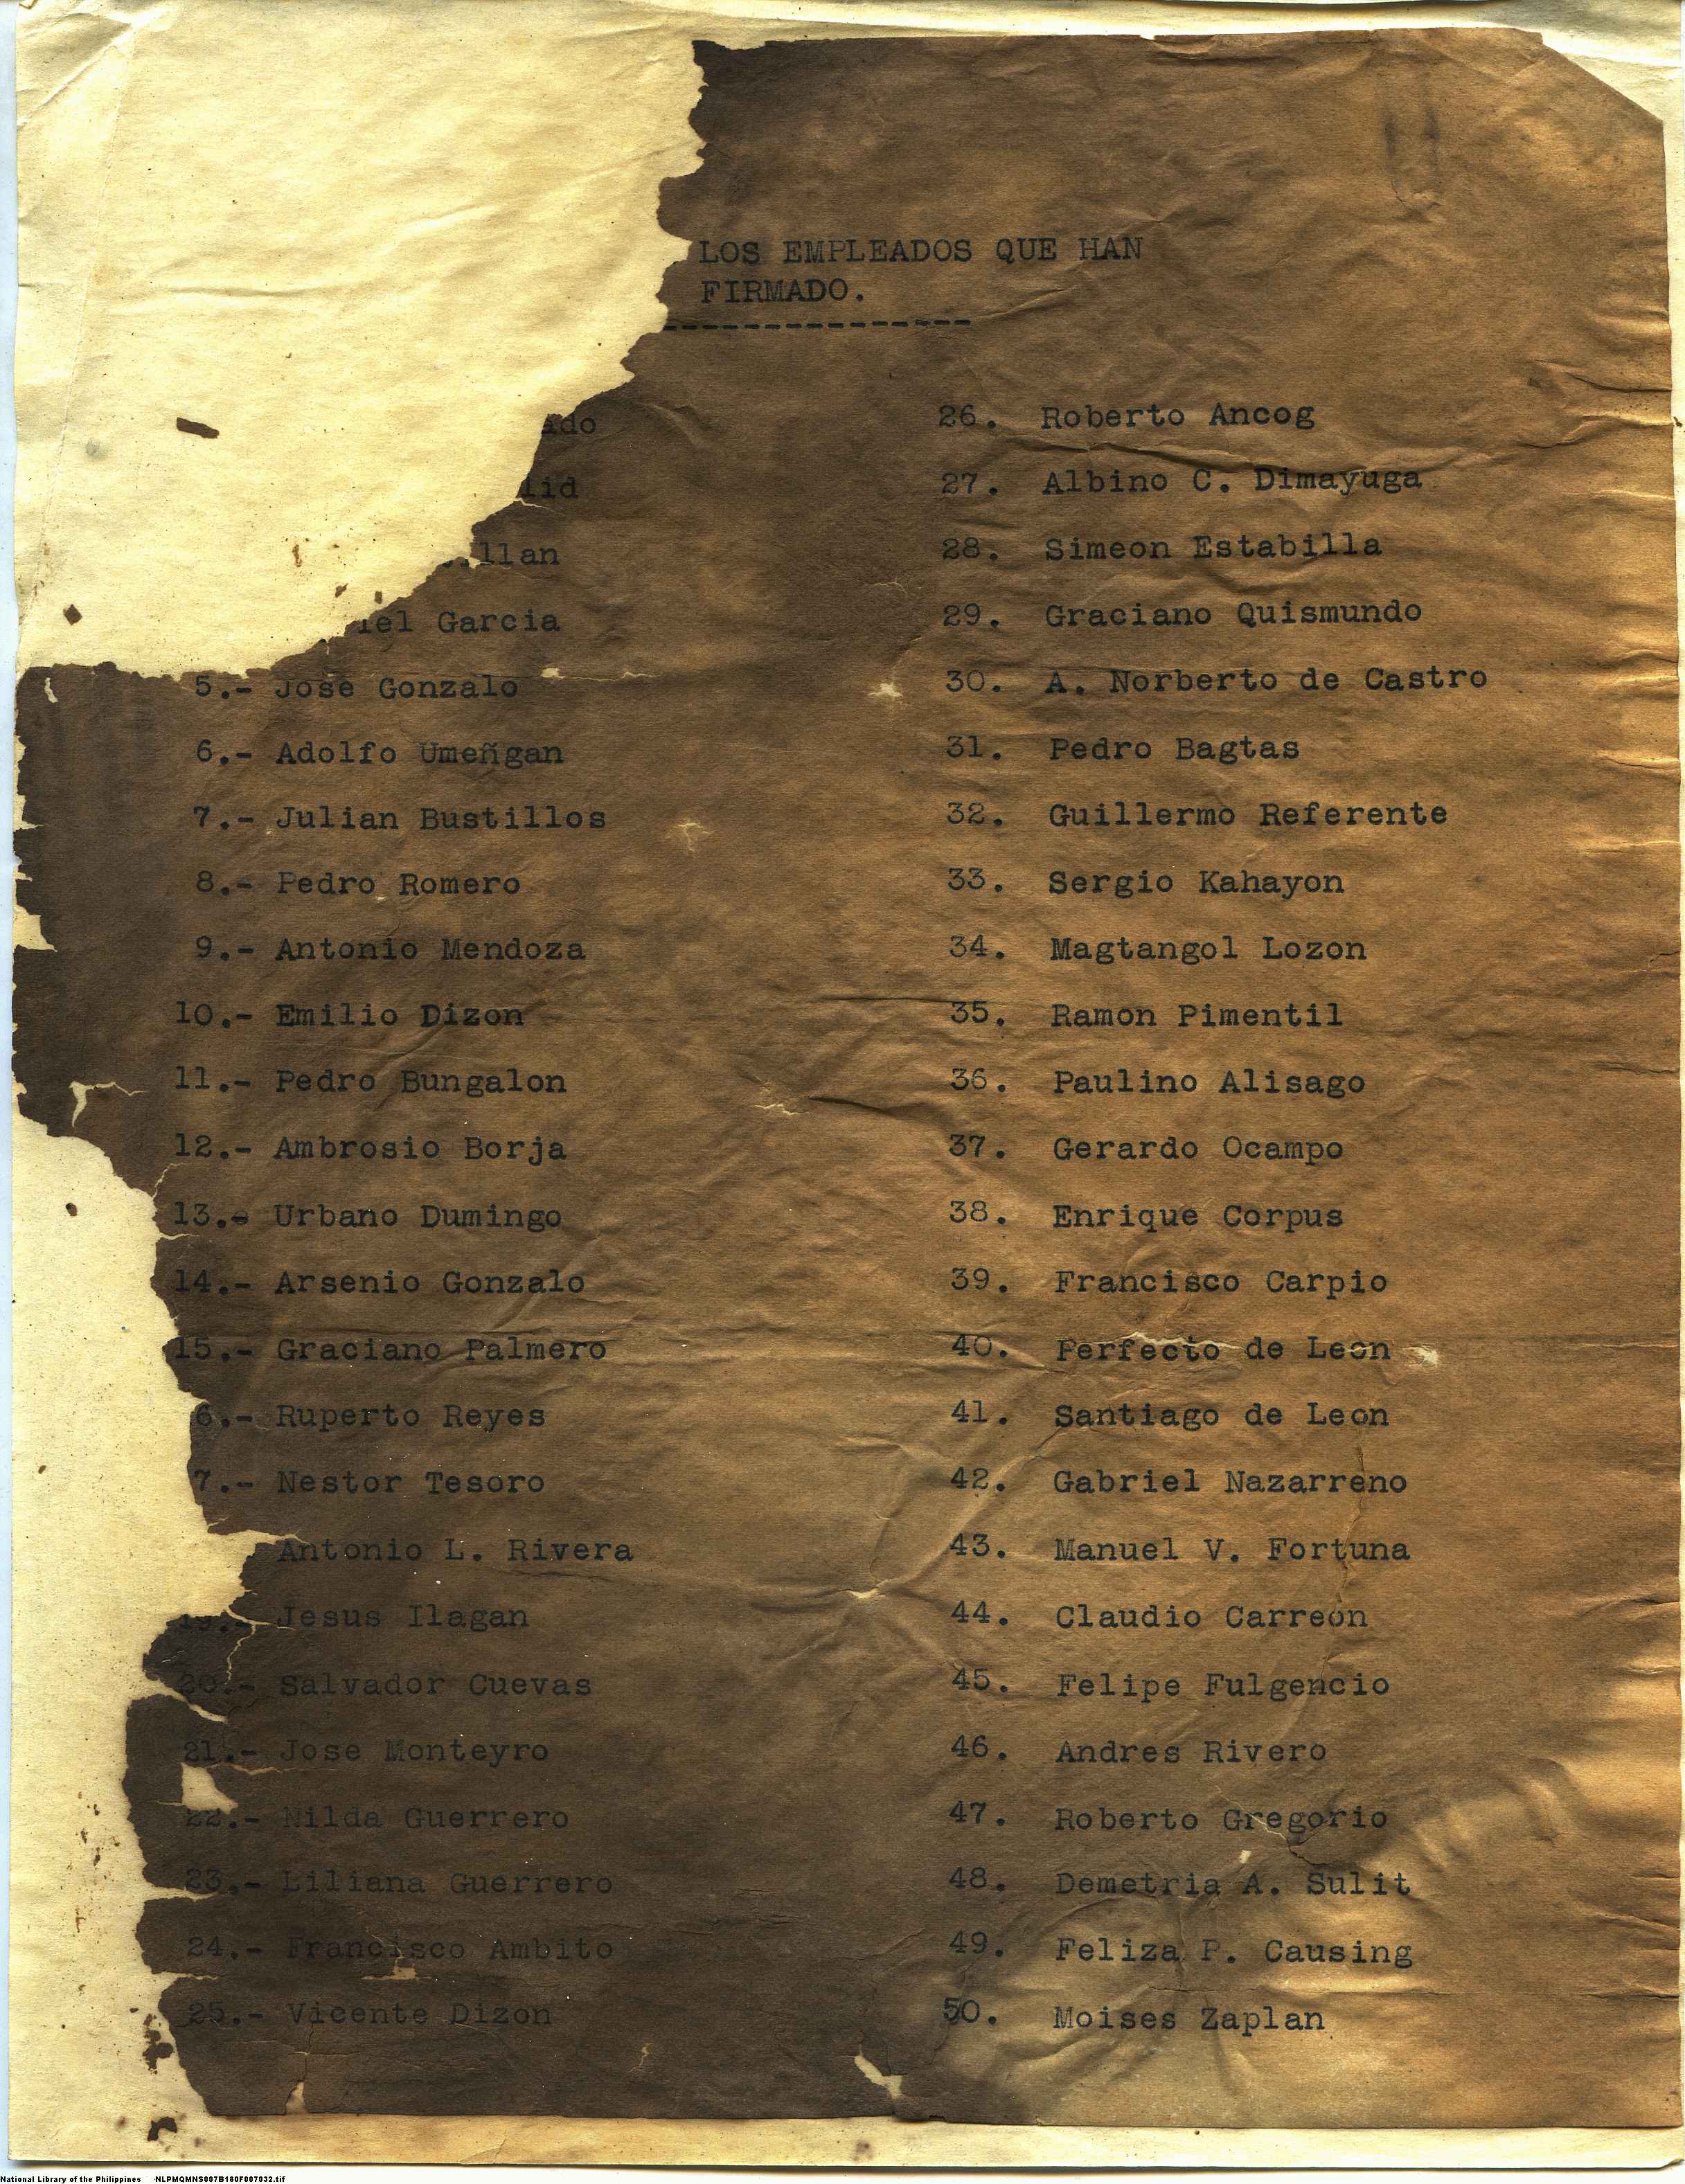 LOS EMPLEADOS QUE HAN
FIRMADO.
----------------
Garcia
5.- Jose Gonzalo
6.- Adolfo Umeñgan
7.- Julian Bustillos
8.- Pedro Romero
9.- Antonio Mendoza
10.- Emilio Dizon
11.- Pedro Bungalon
12.- Ambrosio Borja
13.- Urbano Dumingo
14.- Arsenio Gonzalo
15.- Graciano Palmero
6.- Ruperto Reyes
7.- Nestor Tesoro
Antonio L. Rivera
19.- Jesus Ilagan
20.- Salvador Cuevas
21.- Jose Monteyro
22.- Nilda Guerrero
23.- Liliana Guerrero
24.- Francisco Ambito
25.- Vicente Dizon
26. Roberto Ancog
27. Albino C. Dimayuga
28. Simeon Estabilla
29. Graciano Quismundo
30. A. Norberto de Castro
31. Pedro Bagtas
32. Guillermo Referente
33. Sergio Kahayon
34. Magtangol Lozon
35. Ramon Pimentil
36. Paulino Alisago
37. Gerardo Ocampo
38. Enrique Corpus
39. Francisco Carpio
40. Perfecto de Leon
41. Santiago de Leon
42. Gabriel Nazarreno
43. Manuel V. Fortuna
44. Claudio Carreon
45. Felipe Fulgencio
46. Andres Rivero
47. Roberto Gregorio
48. Demetria A. Sulit
49. Feliza P. Causing
50. Moises Zaplan
National Library of the Philippines NLPMQMNS007B180F007032.tif